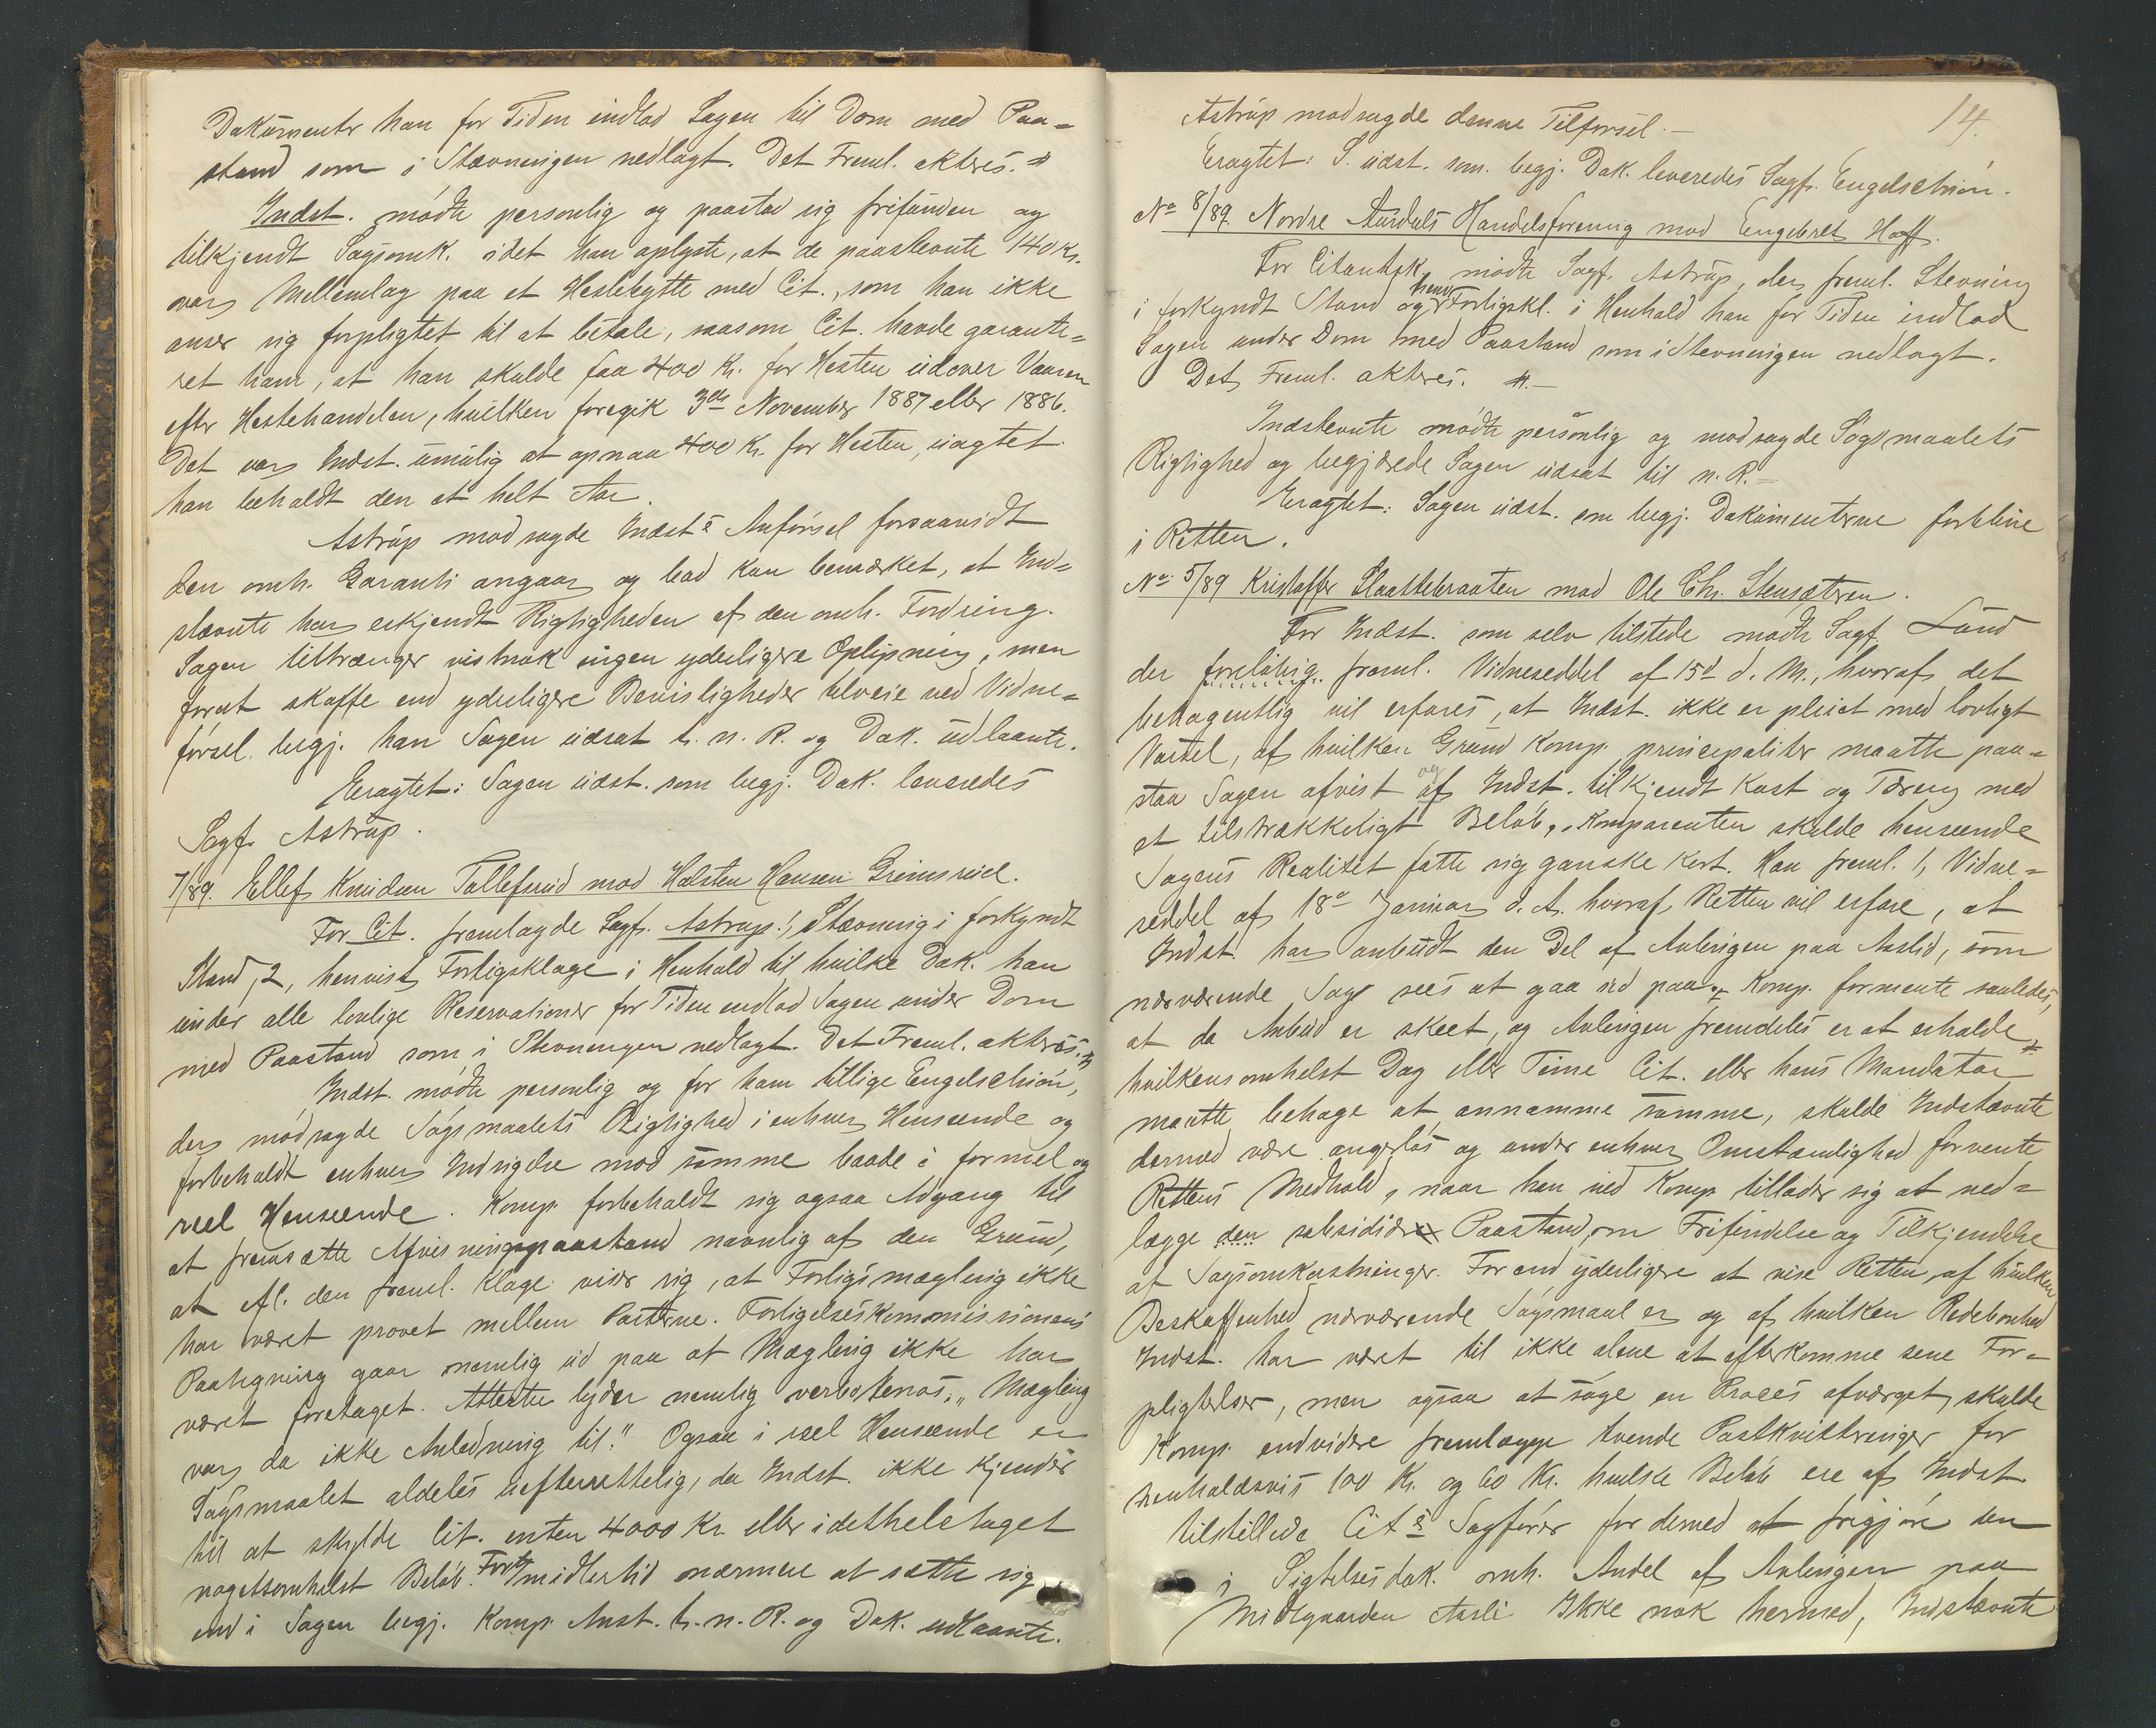 Dokumenter han for Tiden indlod Sagen til Dom med Paa-
stand som i Stævningen nedlagt. Det Freml. akteres.
Indst. mødte personlig og paastod sig frifunden og
tilkjendt Sagsomk. idet han oplyste, at de paastevnte 140 Kr.
var Mellemlag paa et Hestebytte med Cit., som han ikke
anser sig forpligtet til at betale, saasom Cit. havde garante-
ret ham, at han skulde faa 400 Kr. for Hesten udover Vaaren
efter Hestehandelen, hvilken foregik 3die November 1887 eller 1886.
Det var Indst. umulig at opnaa 400 Kr. for Hesten, uagtet
han beholdt den et helt Aar.
Astrup modsagde Indst.s Anførsel forsaavidt
den omh. Garanti angaar og bad kun bemærket, at Ind-
stævnte har erkjendt Rigtigheden af den omh. Fordring.
Sagen tiltrænger vistnok ingen yderligere Oplysning, men
forat skaffe end yderligere Bevisligheder tilveie ved Vidne-
førsel begj. han Sagen udsat t. n. R. og Dok. udlaante.
Eragtet: Sagen udst. som begj. Dok. leveredes
Sagf. Astrup.
7/89. Ellef Knudsen Tollefsrud mod Halsten Hansen Grimsrud.
For Cit. fremlagde Sagf. Astrup 1, Stævning i forkyndt
Stand, 2, henvist Forligsklage i Henhold til hvilke Dok. han
under alle lovlige Reservationer for Tiden indlod Sagen under Dom
med Paastand som i Stevningen nedlagt. Det Freml. akteres.
Indst. mødte personlig og for ham tillige Engelschiøn,
der modsagde Søgsmaalets Rigtighed i enhver Henseende og
forbeholdt enhver Indsigelse mod samme baade i formel og
reel Henseende. Komp. forbeholdt sig ogsaa Adgang til
at fremsætte Afvisningspaastand navnlig af den Grund,
at efl. den freml. Klage viser sig, at Forligsmægling ikke
har været prøvet mellem Parterne. Forligelseskommissionens
Paategning gaar nemlig ud paa at Mægling ikke har
været foretaget. Attesten lyder nemlig verbotenus: „Mægling
var da ikke Anledning til." Ogsaa i reel Henseende er
Søgsmaalet aldeles uefterrettelig, da Indst. ikke kjender
til at skylde Cit. enten 4000 Kr. eller idetheletaget
nogetsomhelst Beløb. Forat midlertid nærmere at sætte sig
ind i Sagen begj. Komp. Anst. t. n. R. og Dok. udlaante.
14.
Astrup modsagde denne Tilførsel.—
Eragtet: S. udst. som begj. Dok. leveredes Sagf. Engelschiøn.
No 8/89. Nordre Aurdals Handelsforening mod Engebret Hoff.
For Citantsk. mødte Sagf. Astrup, der freml. Stevning
i forkyndt Stand og henv. Forligskl. i Henhold han for Tiden indlod
Sagen under Dom med Paastand som i Stevningen nedlagt.
Det Freml. akteres.—
Indstevnte mødte personlig og modsagde Søgsmaalets
Rigtighed og begjærede Sagen udsat til n. R.—
Eragtet: Sagen udst. som begj. Dokumenterne forblive
i Retten.
No: 5/89 Kristoffer Slaattebraaten mod Ole Chr. Stensætren.
For Indst. som selv tilstede mødte Sagf. Lund
der foreløbig freml. Vidneseddel af 15d d. M., hvoraf det
behagentlig vil erfares, at Indst. ikke er pleiet med lovligt
Varsel, af hvilken Grund Komp. principaliter maatte paa-
staa Sagen afvist og Indst. tilkjendt Kost og Tæring med
et tilstrækkeligt Beløb. Komparenten skulde henseende
Sagens Realitet fatte sig ganske kort. Han freml. 1, Vidne-
seddel af 18de Januar d. A. hvoraf Retten vil erfare, at
Indst. har anbudt den Del af Avlingen paa Aaslid, som
nærværende Sag sees at gaa ud paa. Komp. formente saaledes,
at da Anbud er skeet, og Avlingen fremdeles er at erholde
hvilkensomhelst Dag eller Time Cit. eller hans Mandatar
maatte behage at annamme samme, skulde Indstævnte
dermed være angerløs og under enhver Omstændighed forvente
Rettens Medhold, naar han ved Komp. tillader sig at ned-
lægge den subsidiære Paastand om Frifindelse og Tilkjendelse
af Sagsomkostninger. For end yderligere at vise Retten af hvilken
Beskaffenhed nærværende Søgsmaal er og af hvilken Redebonhed
Indst. har været til ikke alene at efterkomme sine For-
pligtelser, men ogsaa at søge en Proces afværget, skulde
Komp. endvidere fremlægge tvende Postkvitteringer for
henholdsvis 100 Kr. og 60 Kr. hvilke Beløb ere af Indst.
tilstillede Cit.s Sagfører for dermed at frigjøre den
i Sigtelsesdok. omh. Andel af Avlingen paa
Midtgaarden Aasli Ikke nok hermed, Indstævnte